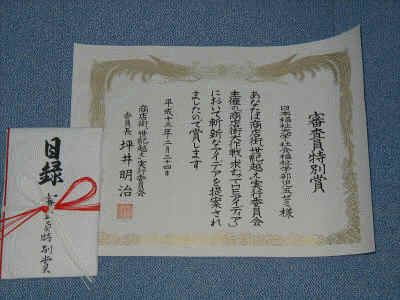 審査員特別賞
日本福祉大学社会福祉学部 ゼミ 様
あなたは商店街世紀越え実行委員会
主催の商店街大作戦「求む!プロのアイディア」
において斬新なアイデアを提案され
ましたので賞します
平成十二年二月二十四日
商店街世紀越え実行委員会
委員長 坪井明治
目録
審査員特別賞